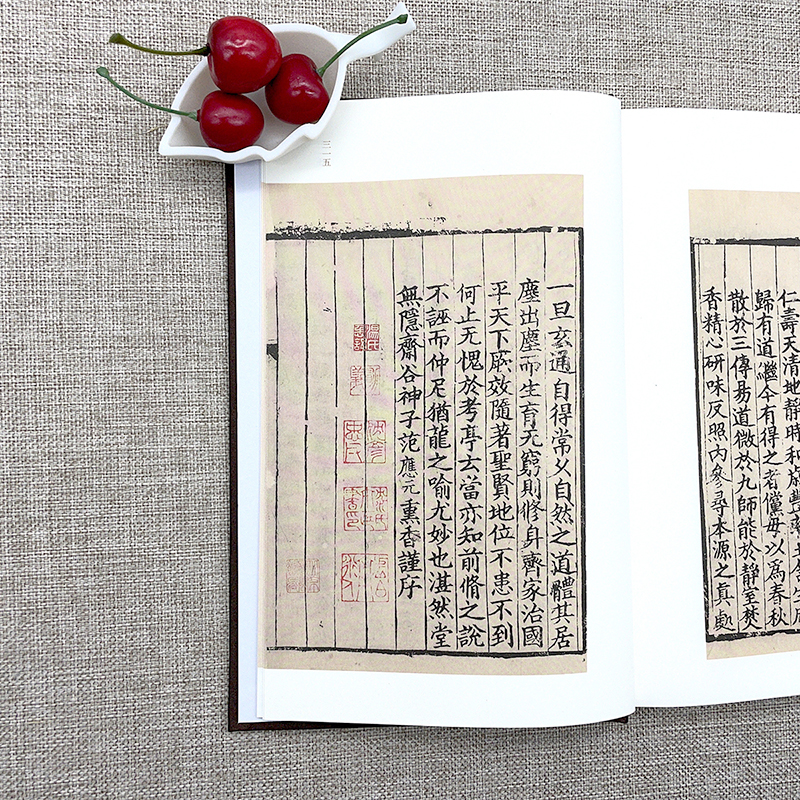 仁壽天清地靜時和
歸有道繼今有得之者儻毋以爲春秋
散於三傳易道微於九師能於靜室焚
香精心研味反照內參尋本源之真處
三一五
一旦玄通自得常乆自然之道體其居
塵出塵而生育无窮則修身齊家治國
平天下厥效隨著聖賢地位不患不到
何止无愧於考亭去當亦知前脩之說
不誣而仲尼猶龍之喻尤妙也湛然堂
無隱齋谷神子范應元熏香謹序